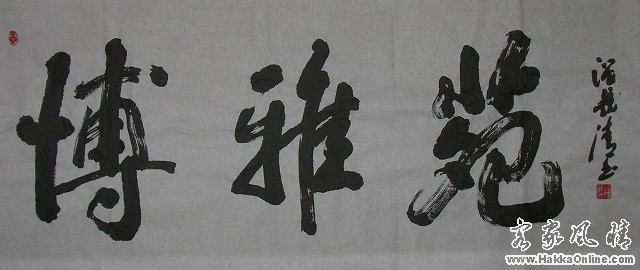 博雅苑
客家風情
www.HakkaOnline.com